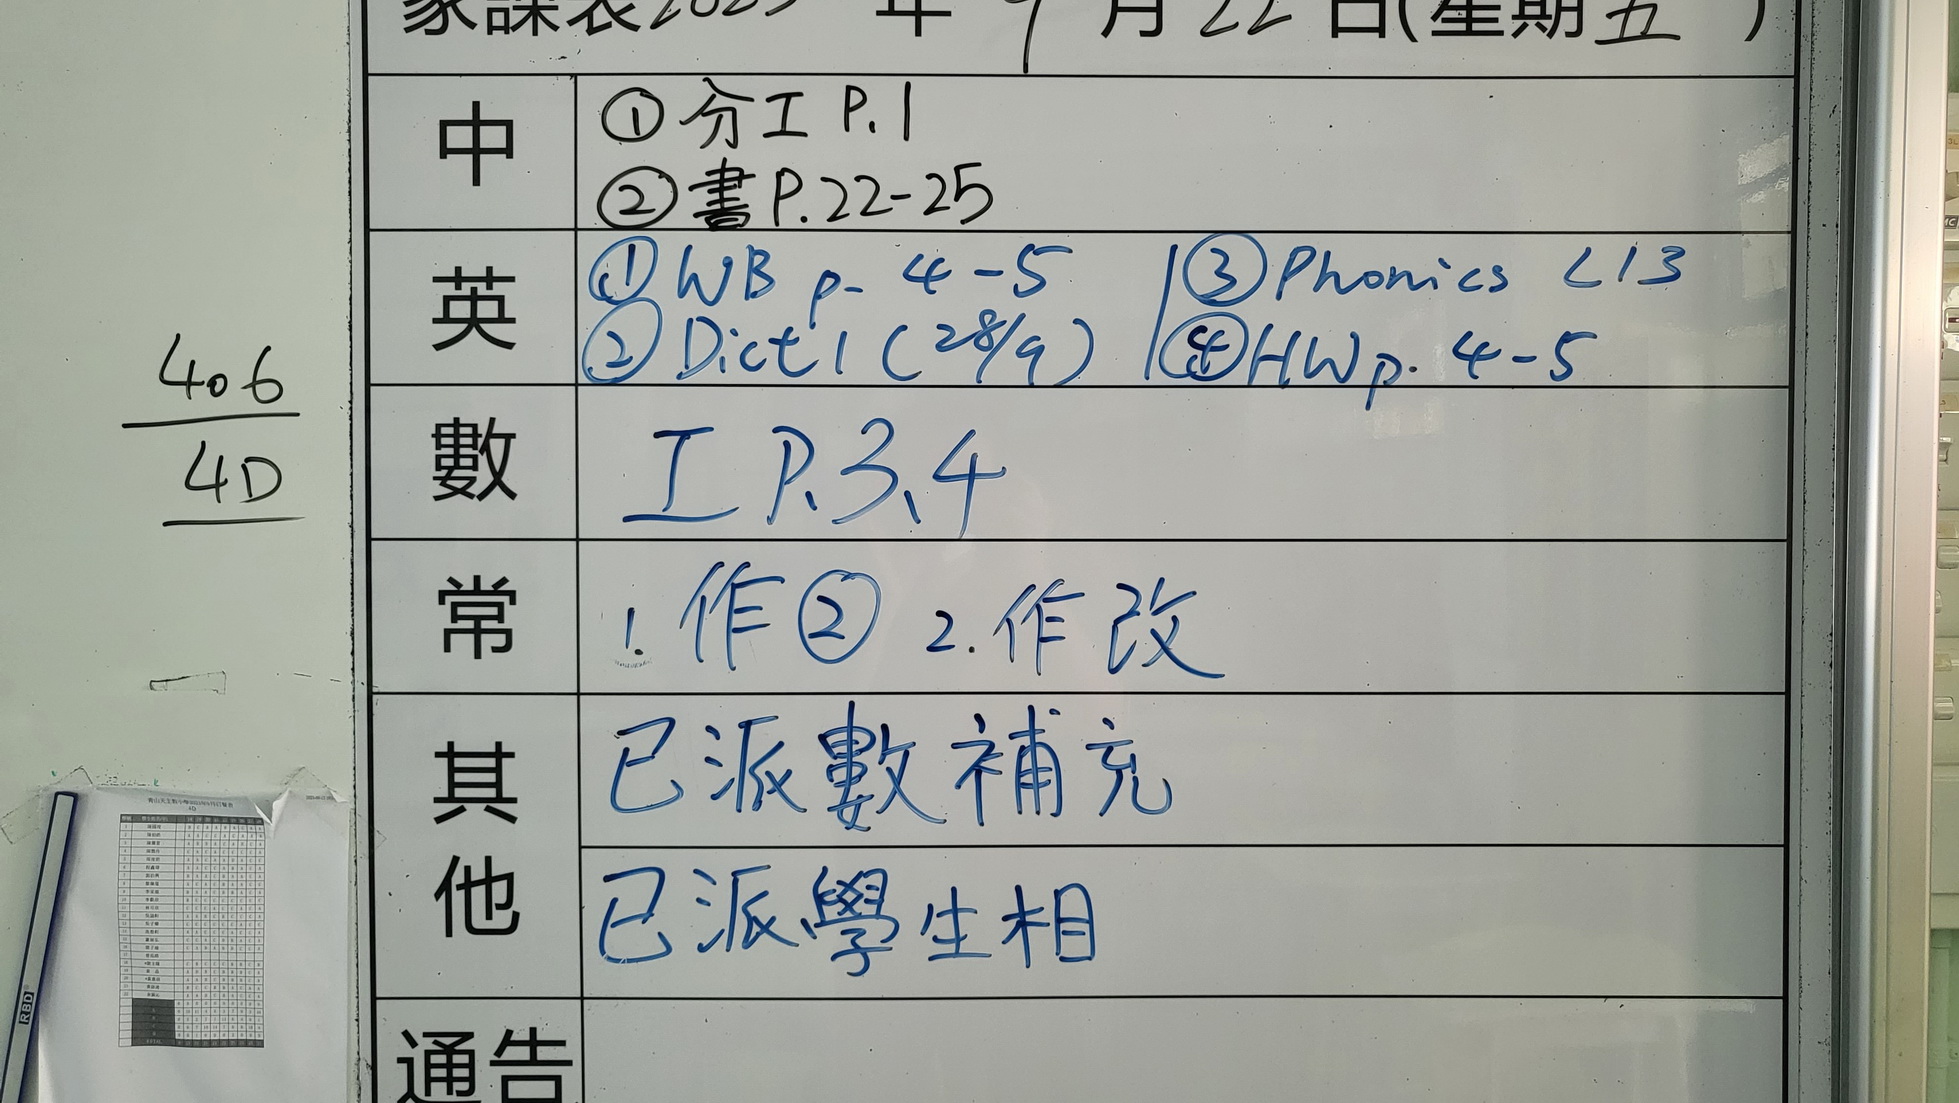 家課表2023年9月22日(星期五)
中
① 分工 P.1
② 書 P.22-25
英
① WB p. 4-5
② Dict 1 (28/9)
③ Phonics L13
④ HW p. 4-5
數
工 P.3、4
常
1. 作② 2. 作改
其他
已派數補充
已派學生相
通告
406
4D
RBD